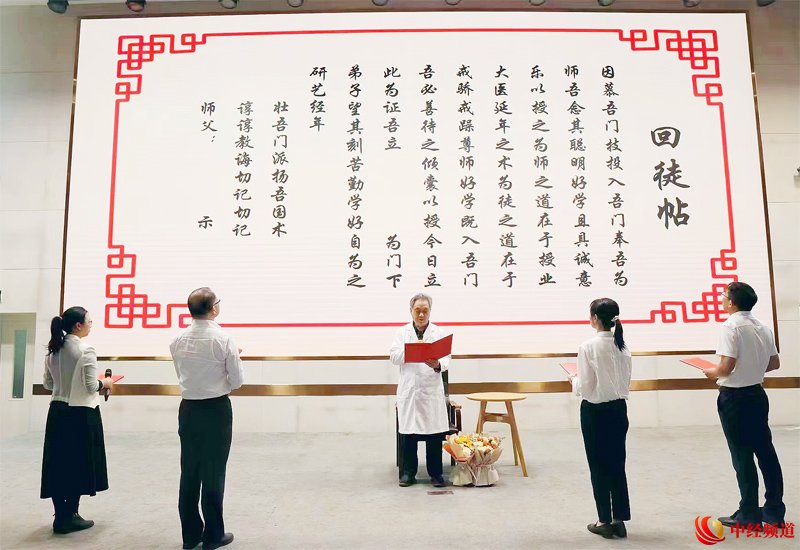 回徒帖
因慕吾门技投入吾门奉吾为
师吾念其聪明好学且具诚意
乐以授之为师之道在于授业
大医延年之术为徒之道在于
戒骄戒躁尊师好学既入吾门
吾必善待之倾囊以授今日立
此为证吾立 为门下
弟子望其刻苦勤学好自为之
研艺经年
壮吾门派扬吾国术
谆谆教诲切记切记
师父： 示
中经频道